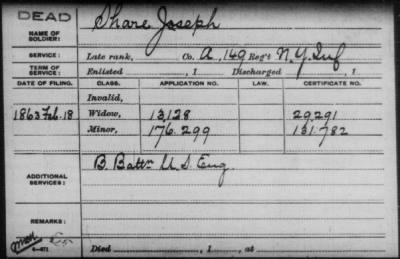 DEAD
NAME OF SOLDIER: Share, Joseph
SERVICE: Late rank, Co. A, 149 Reg't N.Y. Inf
TERM OF SERVICE: Enlisted , 1 Discharged , 1
DATE OF FILING. CLASS. APPLICATION NO. LAW. CERTIFICATE NO.
Invalid,
1863 Feb. 18 Widow, 13,128 29,291
Minor, 176.299 131,782
ADDITIONAL SERVICES: B. Battn U.S. Eng.
REMARKS:
Died , 1 , at